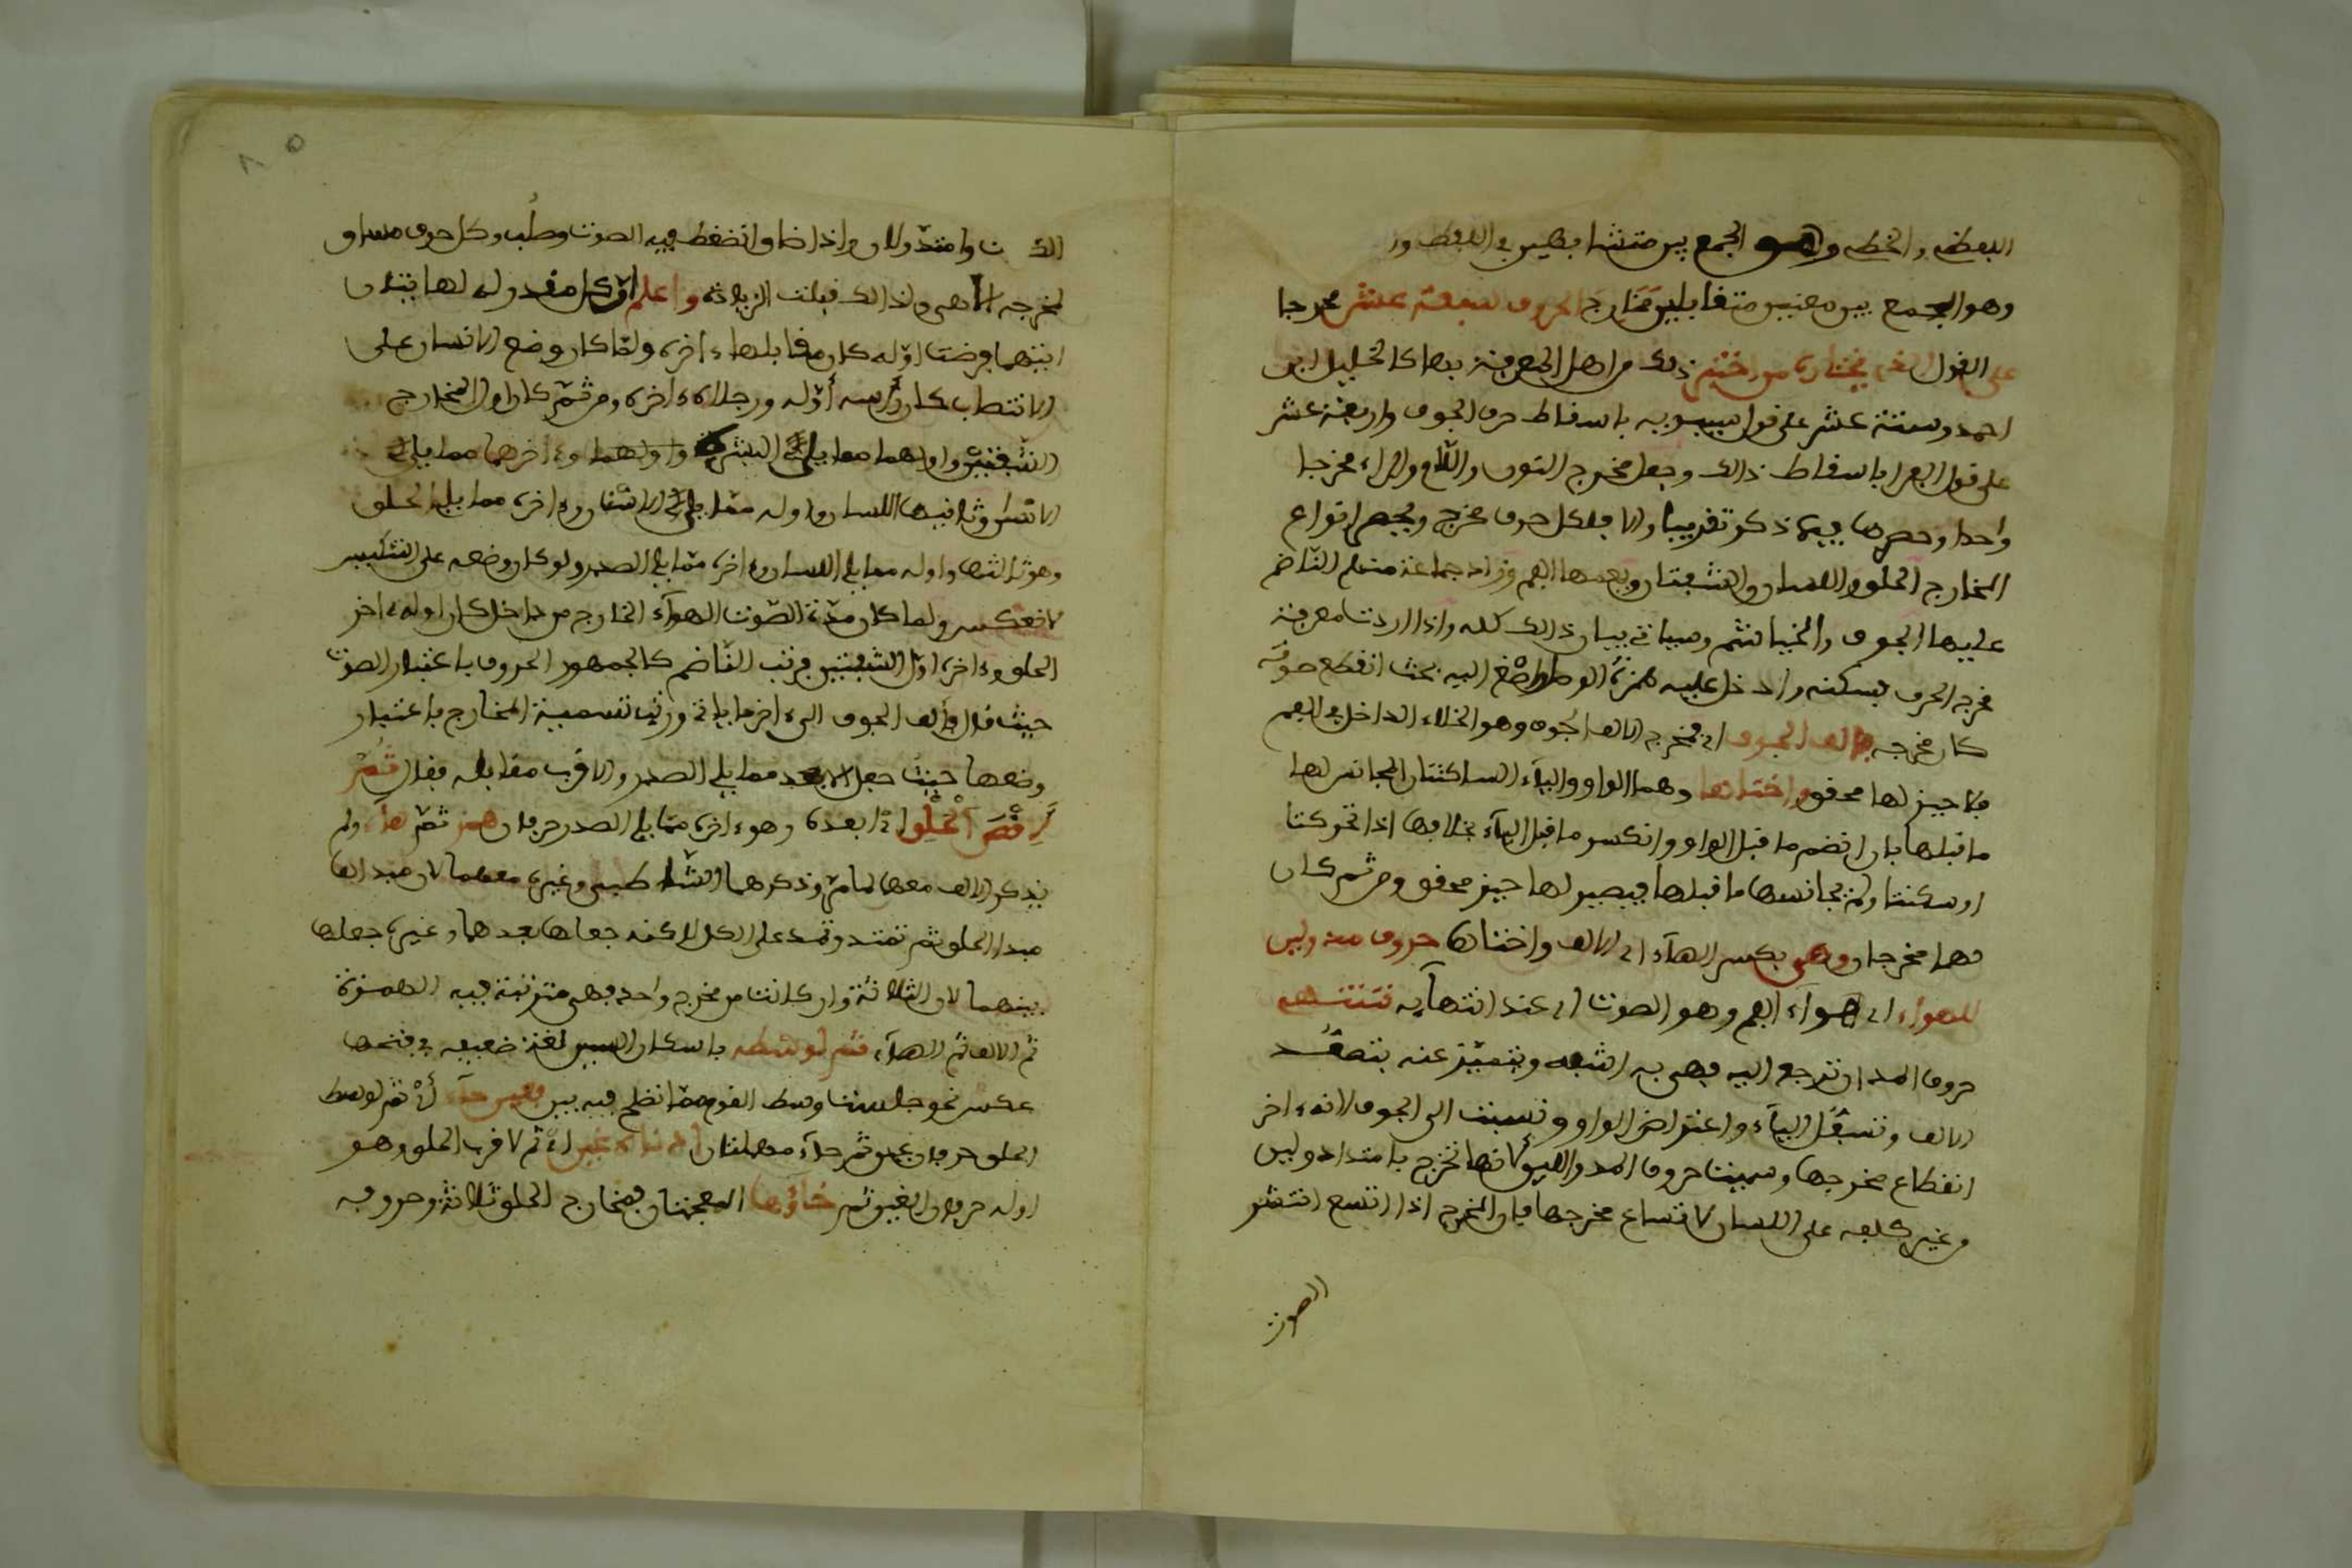 اللفظ والخط وهو الجمع بين متشابهين في اللفظ
وهو الجمع بين معنيين متقابلين مخارج الحروف سبعة عشر مخرجا
على القول الذي يختاره من اختبر ذلك من اهل المعرفة بها كالخليل ابن
احمد وستة عشر على قول سيبويه باسقاط حرف الجوف واربعة عشر
على قول الفرا باسقاط ذالك وجعل مخرج النون واللام والراء مخرجا
واحدا وحصرها فيما ذكر تقريبا والا فلكل حرف مخرج ويحصر انواع
المخارج الحلق واللسان والشفتان ويعمها الفم وزاد جماعة منهم الناضم
عليها الجوف والخياشم وسياتي بيان ذالك كله واذا اردت معرفة
مخرج الحرف فسكنه وادخل عليه همزة الوصل واصغ اليه بحث انقطع صوته
كان مخرجه فالف الجوف اي فمخرج الالف الجوف وهو الخلاء الداخل في الفم
فلا حيز لها محقق واختاها وهما الواو والياء الساكنتان المجانس لها
ما قبلها بان انضم ما قبل الواو وانكسر ما قبل الياء بخلافها اذا تحركتا
او سكنتا ولم يجانسها ما قبلها فيصير لها حيز محقق ومن ثم كان
لهما مخرجان وهي بكسر الهاء اي الالف واختاها حروف مد ولين
للهواء اي هواء الفم وهو الصوت اي عند انتهايه تنتهي
حروف المد اي ترجع اليه فهي به اشبه ويتميز عنه بتصعد
الالف وتسفل الياء واعتراض الواو ونسبت الى الجوف لانه ءاخر
انقطاع مخرجها وسميت حروف المد واللين لانها تخرج بامتداد ولين
من غير كلفه على اللسان لاتساع مخرجها فان المخرج اذا اتسع انتشر
الصوت
وامتد ولان واذا ضاق انضغط فيه الصوت وصلب وكل حرف مساو
لمخرجه الا هي ولذالك قبلت الزيادة واعلم ان كل مقدر له نهايتان
ايتهما فرضت اوله كان مقابلها ءاخره ولما كان وضع الانسان على
الانتصاب كان راسه أوله ورجلاه ءاخره ومن ثم كان اول المخارج
الشفتين واولهما مما يلي البشرة وءاخرهما مما يلي
الاسنان وثانيها اللسان واوله مما يلي الاسنان وءاخره مما يلي الحلق
وهو ثالثها واوله مما يلي اللسان وءاخره مما يلي الصدر ولو كان وضعه على التنكيس
لانعكس ولما كان مدة الصوت الهواء الخارج من داخل كان اوله ءاخر
الحلق وءاخره اول الشفتين فرتب الناضم كالجمهور الحروف باعتبار الصوت
حيث قال فألف الجوف الى ءاخر ما ياتي ورتب تسمية المخارج باعتبار
وضعها حيث جعل الابعد مما يلي الصدر والاقرب مقابله فقال ثم
لاقصى الحلق اي ابعده وهو ءاخره مما يلي الصدر حرفان همز ثم هاء ولم
يذكر الالف معها لما مر وذكرهما الشاطبي وغيره معهما لان مبداها
مبدا الحلق ثم تمتد وتمد على الكل لاكنه جعلها بعدهما وغيره جعلها
بينهما لان الثلاثة وان كانت من مخرج واحد فهي مترتبة فيه الهمزة
ثم الالف ثم الهاء ثم لوسطه باسكان السين لغة ضعيفه في فتحها
عكس نحو جلست وسط القوم مما انظم فيه بين فعين حاء أي ثم لوسط
الحلق حرفان عين ثم حاء مهملتان ادناه غين اي ثم لاقرب الحلق وهو
اوله حرفان الغين ثم خاؤها المعجمتان فمخارج الحلق ثلاثة وحروفه